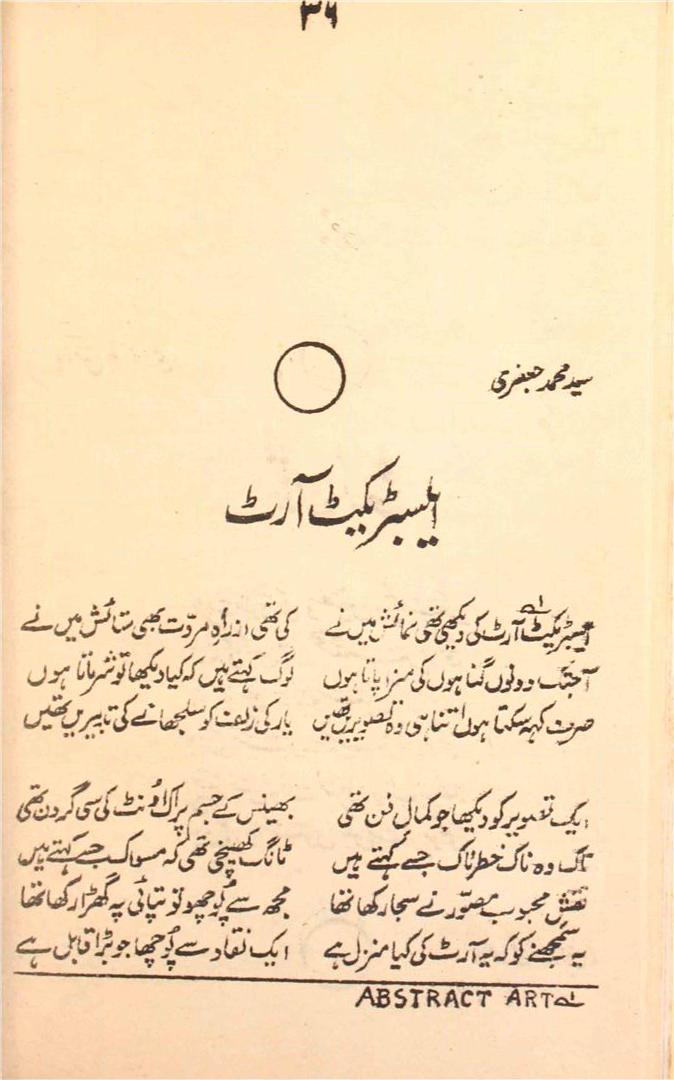 ۳۶
سید محمد جعفری
ایبسٹریکٹ آرٹ
ایبسٹریکٹ آرٹ کی دیکھی تھی نمائش میں نے کی تھی از راہِ مروّت بھی ستائش میں نے
آجتک دونوں گناہوں کی سزا پاتا ہوں لوگ کہتے ہیں کہ کیا دیکھا تو شرماتا ہوں
صرف کہہ سکتا ہوں اتنا ہی وہ تصویریں تھیں یار کی زلف کو سلجھانے کی تدبیریں تھیں
ایک تصویر کو دیکھا جو کمالِ فن تھی بھینس کے جسم پر اک اونٹ کی سی گردن تھی
ناک وہ ناک خطرناک جسے کہتے ہیں ٹانگ کھینچی تھی کہ مسواک جسے کہتے ہیں
نقشِ محبوب مصوّر نے سجا رکھا تھا مجھ سے پُوچھو تو تپائی پہ گھڑا رکھا تھا
یہ سمجھنے کو کہ یہ آرٹ کی کیا منزل ہے ایک نقاد سے پُوچھا جو بڑا قابل ہے
ABSTRACT ART لے